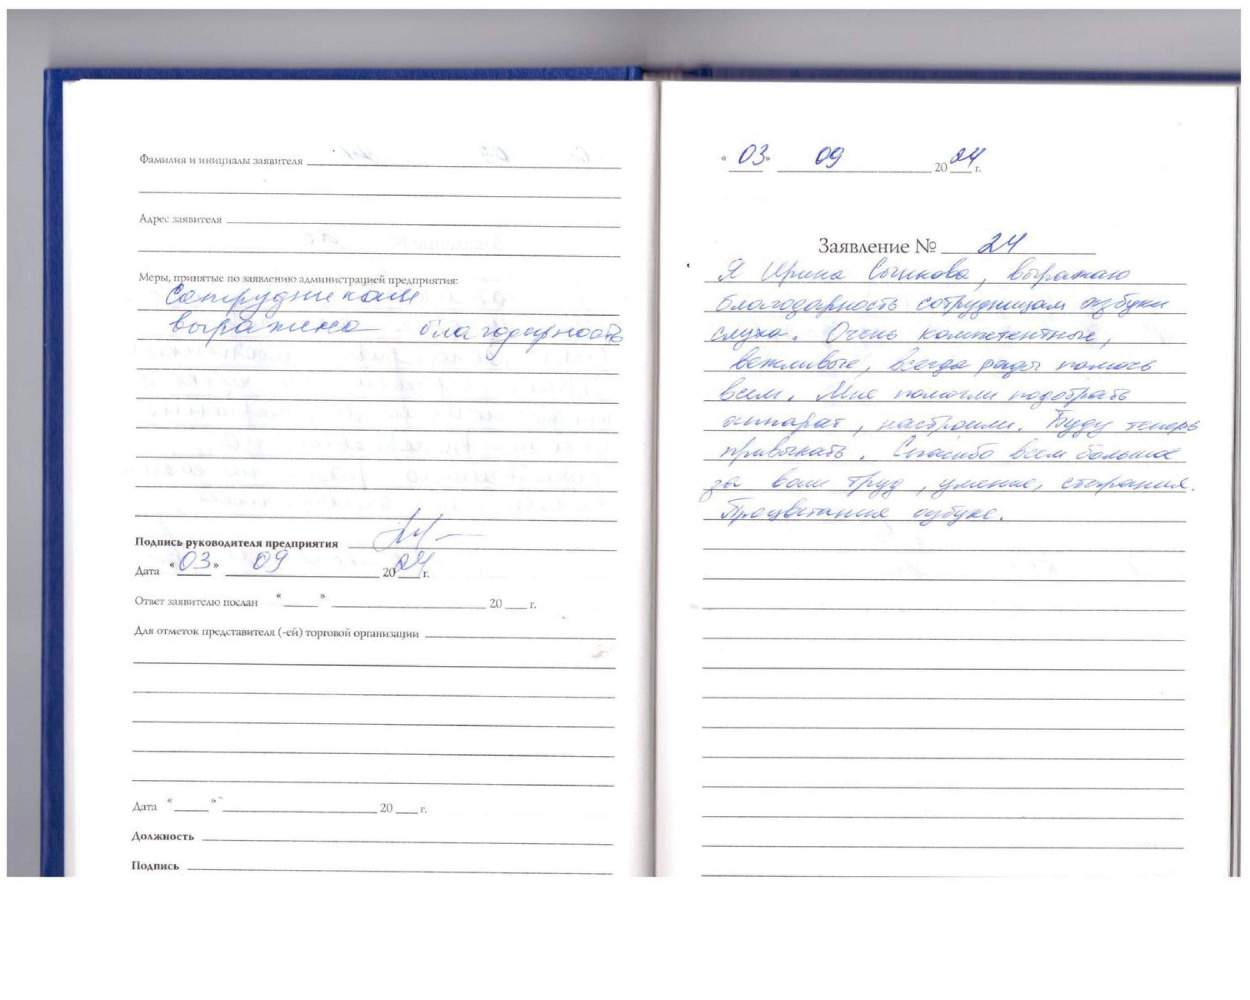 Фамилия и инициалы заявителя
Адрес заявителя
Меры, принятые по заявлению администрацией предприятия:
Сотрудникам
выражена благодарность
Подпись руководителя предприятия
Дата "03" 09 2024 г.
Ответ заявителю послан " " 20 г.
Для отметок представителя (-ей) торговой организации
Дата " " 20 г.
Должность
Подпись
"03" 09 2024 г.
Заявление № 24
Я Ирина, выражаю
благодарность сотрудницам азбуки
слуха. Очень компетентные,
вежливые, всегда рады помочь
всем. Мне помогли подобрать
аппарат, настроили. Буду теперь
привыкать. Спасибо всем большое
за ваш труд, умение, старания.
Процветания азбуке.